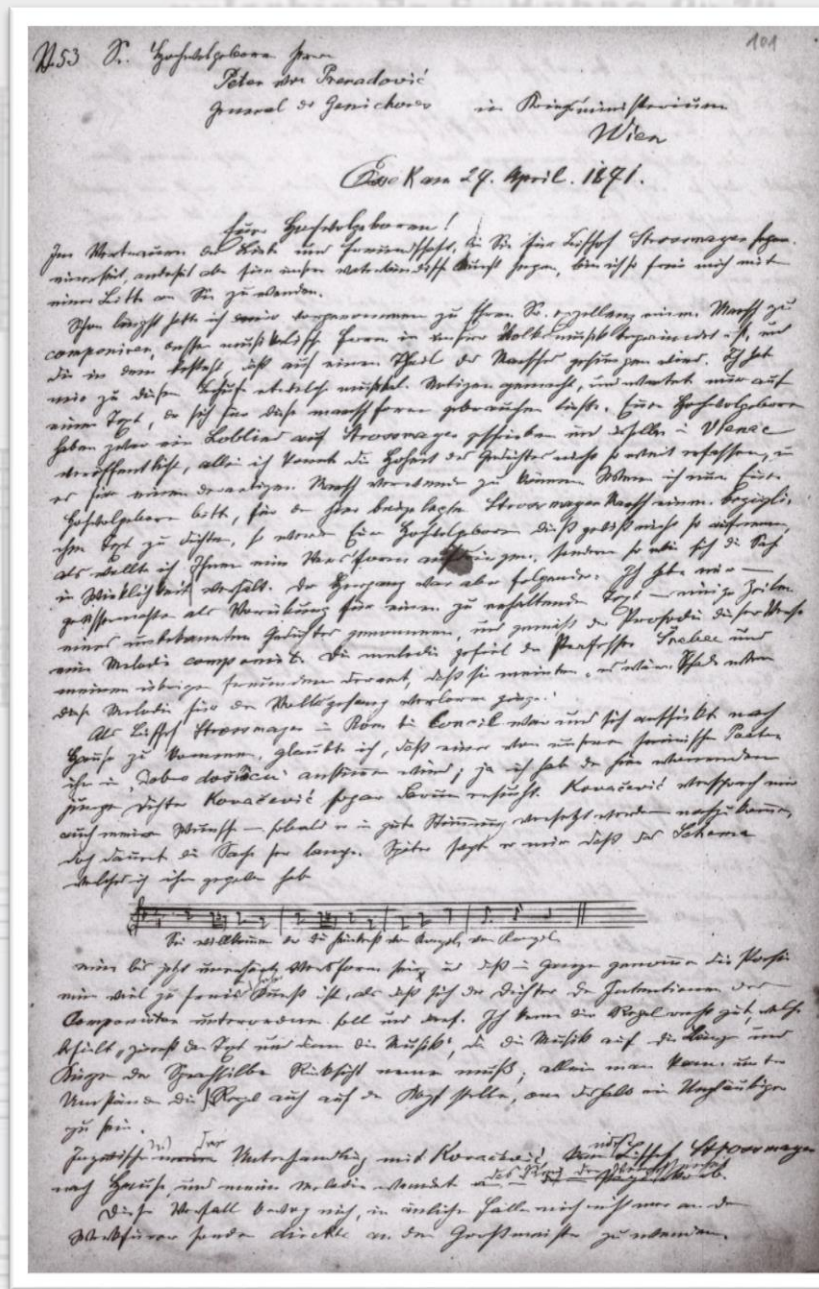 N. 53 S. Hochwolgeboren Herrn
Peter von Preradović
General der im Kriegsministerium
Wien
Essek am 29. April. 1871.
Euer Hochwolgeboren!
Im Vertrauen die Liebe und Freundschaft, die Sie für Bischof Strossmayer hegen
einerseits, anderseits aber für unsere vaterländische Kunst hegen, bin ich so frei mich mit
einer Bitte an Sie zu wenden.
Schon längst hatte ich mir vorgenommen zu Ehren Sr. Exzellenz einen Marsch zu
componiren, dessen musikalische Form in unserer Volksmusik begründet ist, und
die in dem besteht, daß auf einen Theil des Marsches gesungen wird. Ich hab
mir zu diesem Behuf etwelche musikal. Notizen gemacht, und wartete nur auf
einen Text, der sich für diese Marschform gebrauchen ließe. Euer Hochwolgeboren
haben zwar ein Loblied auf Strossmayer geschrieben und dasselbe in Vienac
veröffentlicht, allein ich konnte die Hoheit des Gedichtes nicht so weit erfassen, um
es für einen derartigen Marsch verwenden zu können. Wenn ich nun Euer
Hochwolgeboren bitte, für den hier beigelegten Strossmayer Marsch einen
Text zu dichten, so werden Euer Hochwolgeboren dieß gewiß nicht so auffassen,
als wollte ich Ihnen eine Versform aufdringen, sondern so wie sich die Sache
in Wirklichkeit verhält. Der Hergang war aber folgender: Ich habe mir —
gewissermaßen als Vorübung für einen zu erhaltenden Text — einige Zeilen
eines unbekannten Gedichtes genommen, und gemäß der Prosodie dieser Verse
eine Melodie componirt. Die Melodie gefiel dem Professor und
meinen übrigen Freunden derart, daß sie meinten, es wäre Schade wenn
diese Melodie für den Volksgesang verloren ginge.
Als Bischof Strossmayer in Rom bei Concil war und sich anschickte nach
Hause zu kommen, glaubte ich, daß einer von unseren Poeten
ihm ein „Dobro došao“ anstimmen wird; ja ich hab den hier wohnenden
jungen Dichter Kovačević sogar darum ersucht. Kovačević versprach mir
auch meinen Wunsch — sobald er in gute Stimmung versetzt werden — nachzukommen,
doch dauert die Sache sehr lange. Später sagte er mir daß das Schema
welches ich ihm gegeben hab
Sei willkommen der du
eine bis jetzt Versform sei, und daß im Ganzen genommen die Poesie
eine viel zu freie Kunst ist, als daß sich der Dichter den Intentionen des
Componisten unterordnen soll und darf. Ich kenne die Regel recht gut, welche
befielt „zuerst der Text und dann die Musik“, da die Musik auf die Länge und
Kürze der Sprachsilbe Rücksicht nemen muß; allein man kann unter
Umständen die Regel auch auf den Kopf stellen, one deshalb ein Ungläubiger
zu sein.
Inzwischen der Unterhandlung mit Kovačević kam Bischof Strossmayer
nach Hause, und meine Melodie
Dieser Vorfall bewog mich, in änliche Fälle mich nicht mer an den
Werkführer sondern direkte an den Großmeister zu wenden.
101